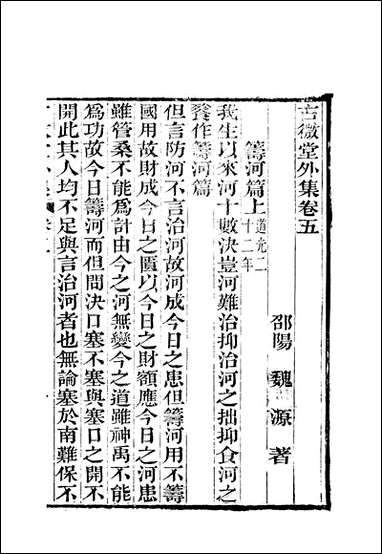 古微堂外集卷五
邵陽 魏 源 著
籌河篇上 道光二十二年
我生以來河十數決豈河難治抑治河之拙抑食河之
餮作籌河篇
但言防河不言治河故河成今日之患但籌河用不籌
國用故財成今日之匱以今日之財額應今日之河患
雖管桑不能爲計由今之河無變今之道雖神禹不能
爲功故今日籌河而但問決口塞不塞與塞口之開不
開此其人均不足與言治河者也無論塞於南難保不